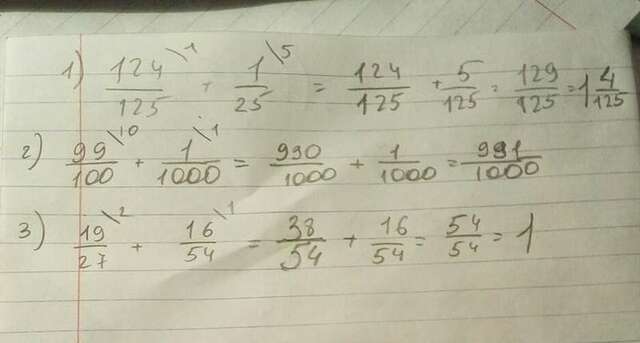 1) 124/125 \1 + 1/25 \5 = 124/125 + 5/125 = 129/125 = 1 4/125
2) 99/100 \10 + 1/1000 \1 = 990/1000 + 1/1000 = 991/1000
3) 19/27 \2 + 16/54 \1 = 38/54 + 16/54 = 54/54 = 1